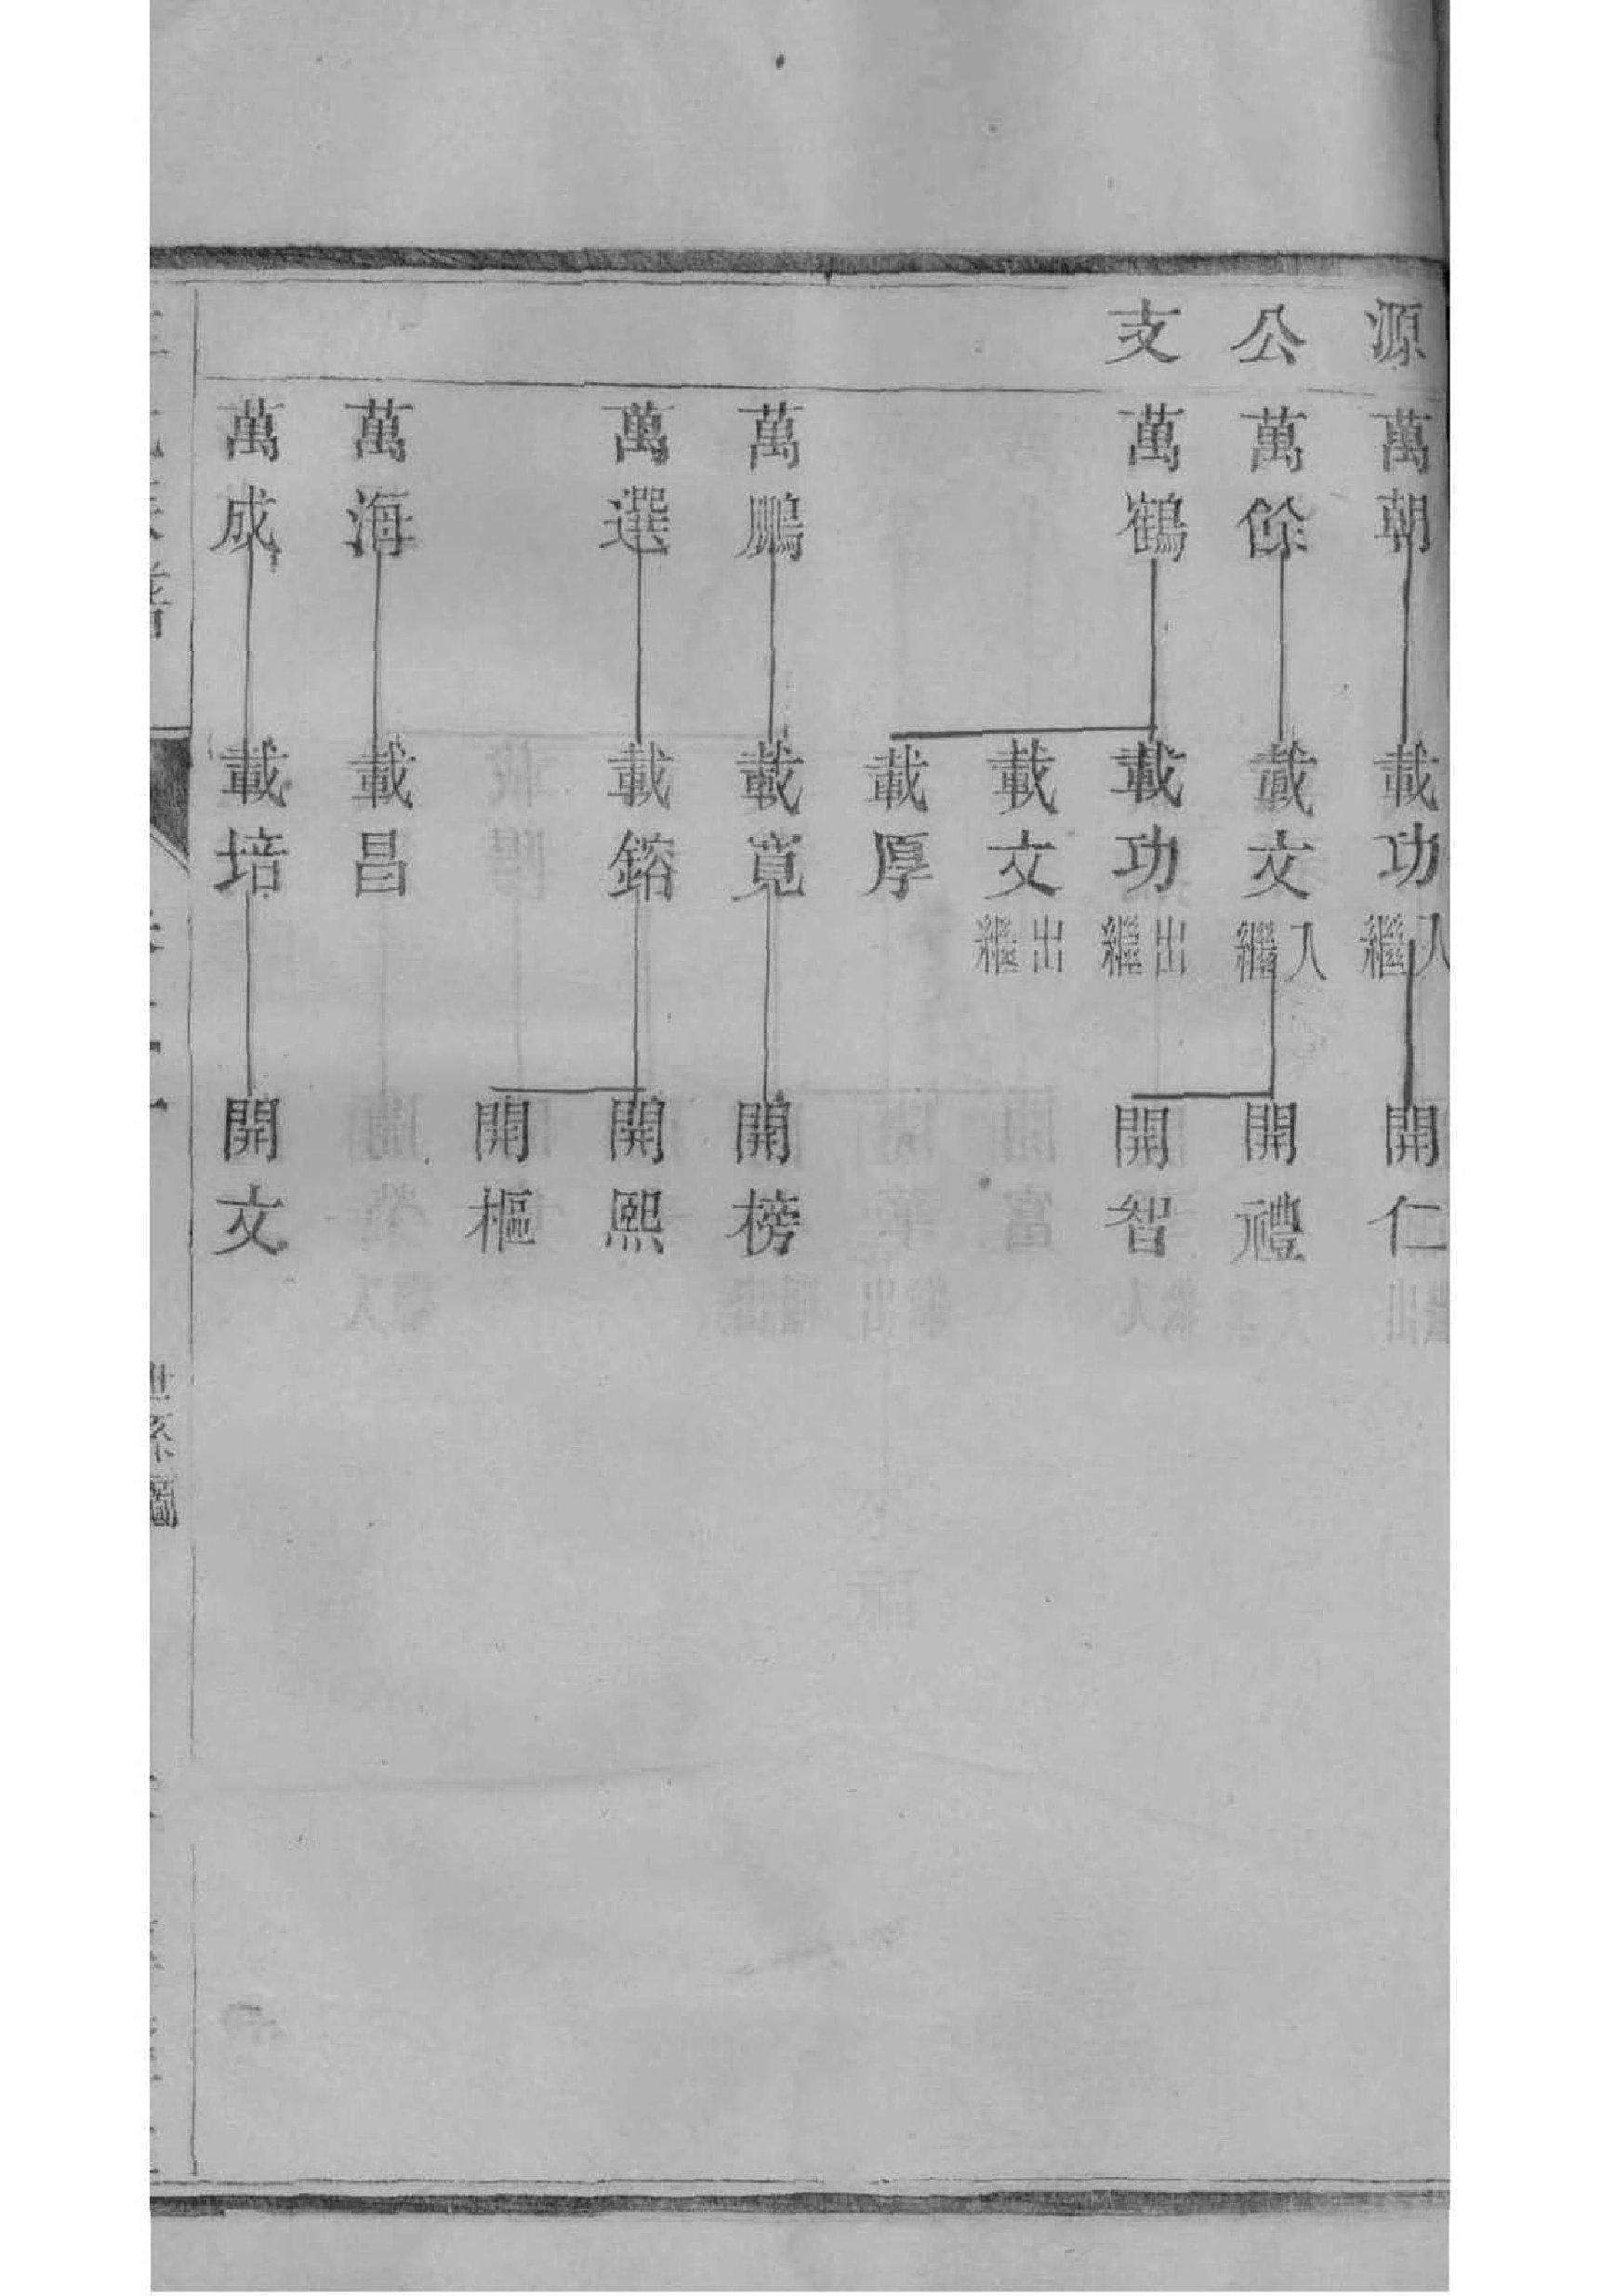 源公支
萬朝
萬餘
萬鶴
萬鵬
萬選
萬海
萬成
載功 入繼
載文 入繼
載功 出繼
載文 出繼
載厚
載寬
載鎔
載昌
載培
開仁
開禮
開智
開榜
開熙
開樞
開文
世系圖